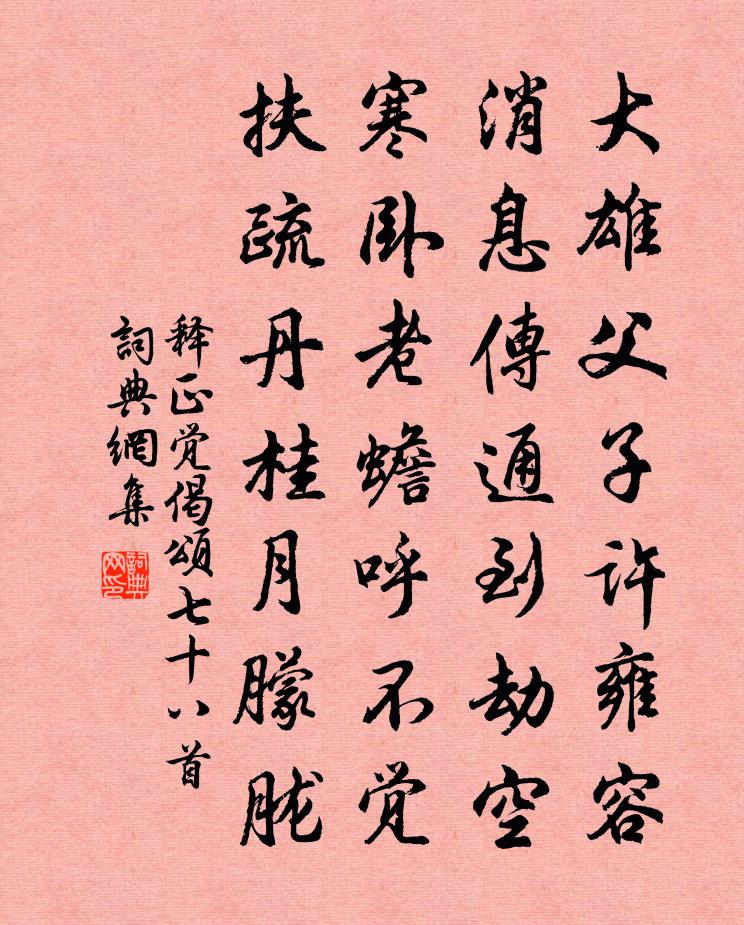 大雄父子許雍容
消息傳通到劫空
寒卧老蟾呼不觉
扶疏丹桂月朦胧
释正觉偈颂七十八首
詞典網集
詞典网印